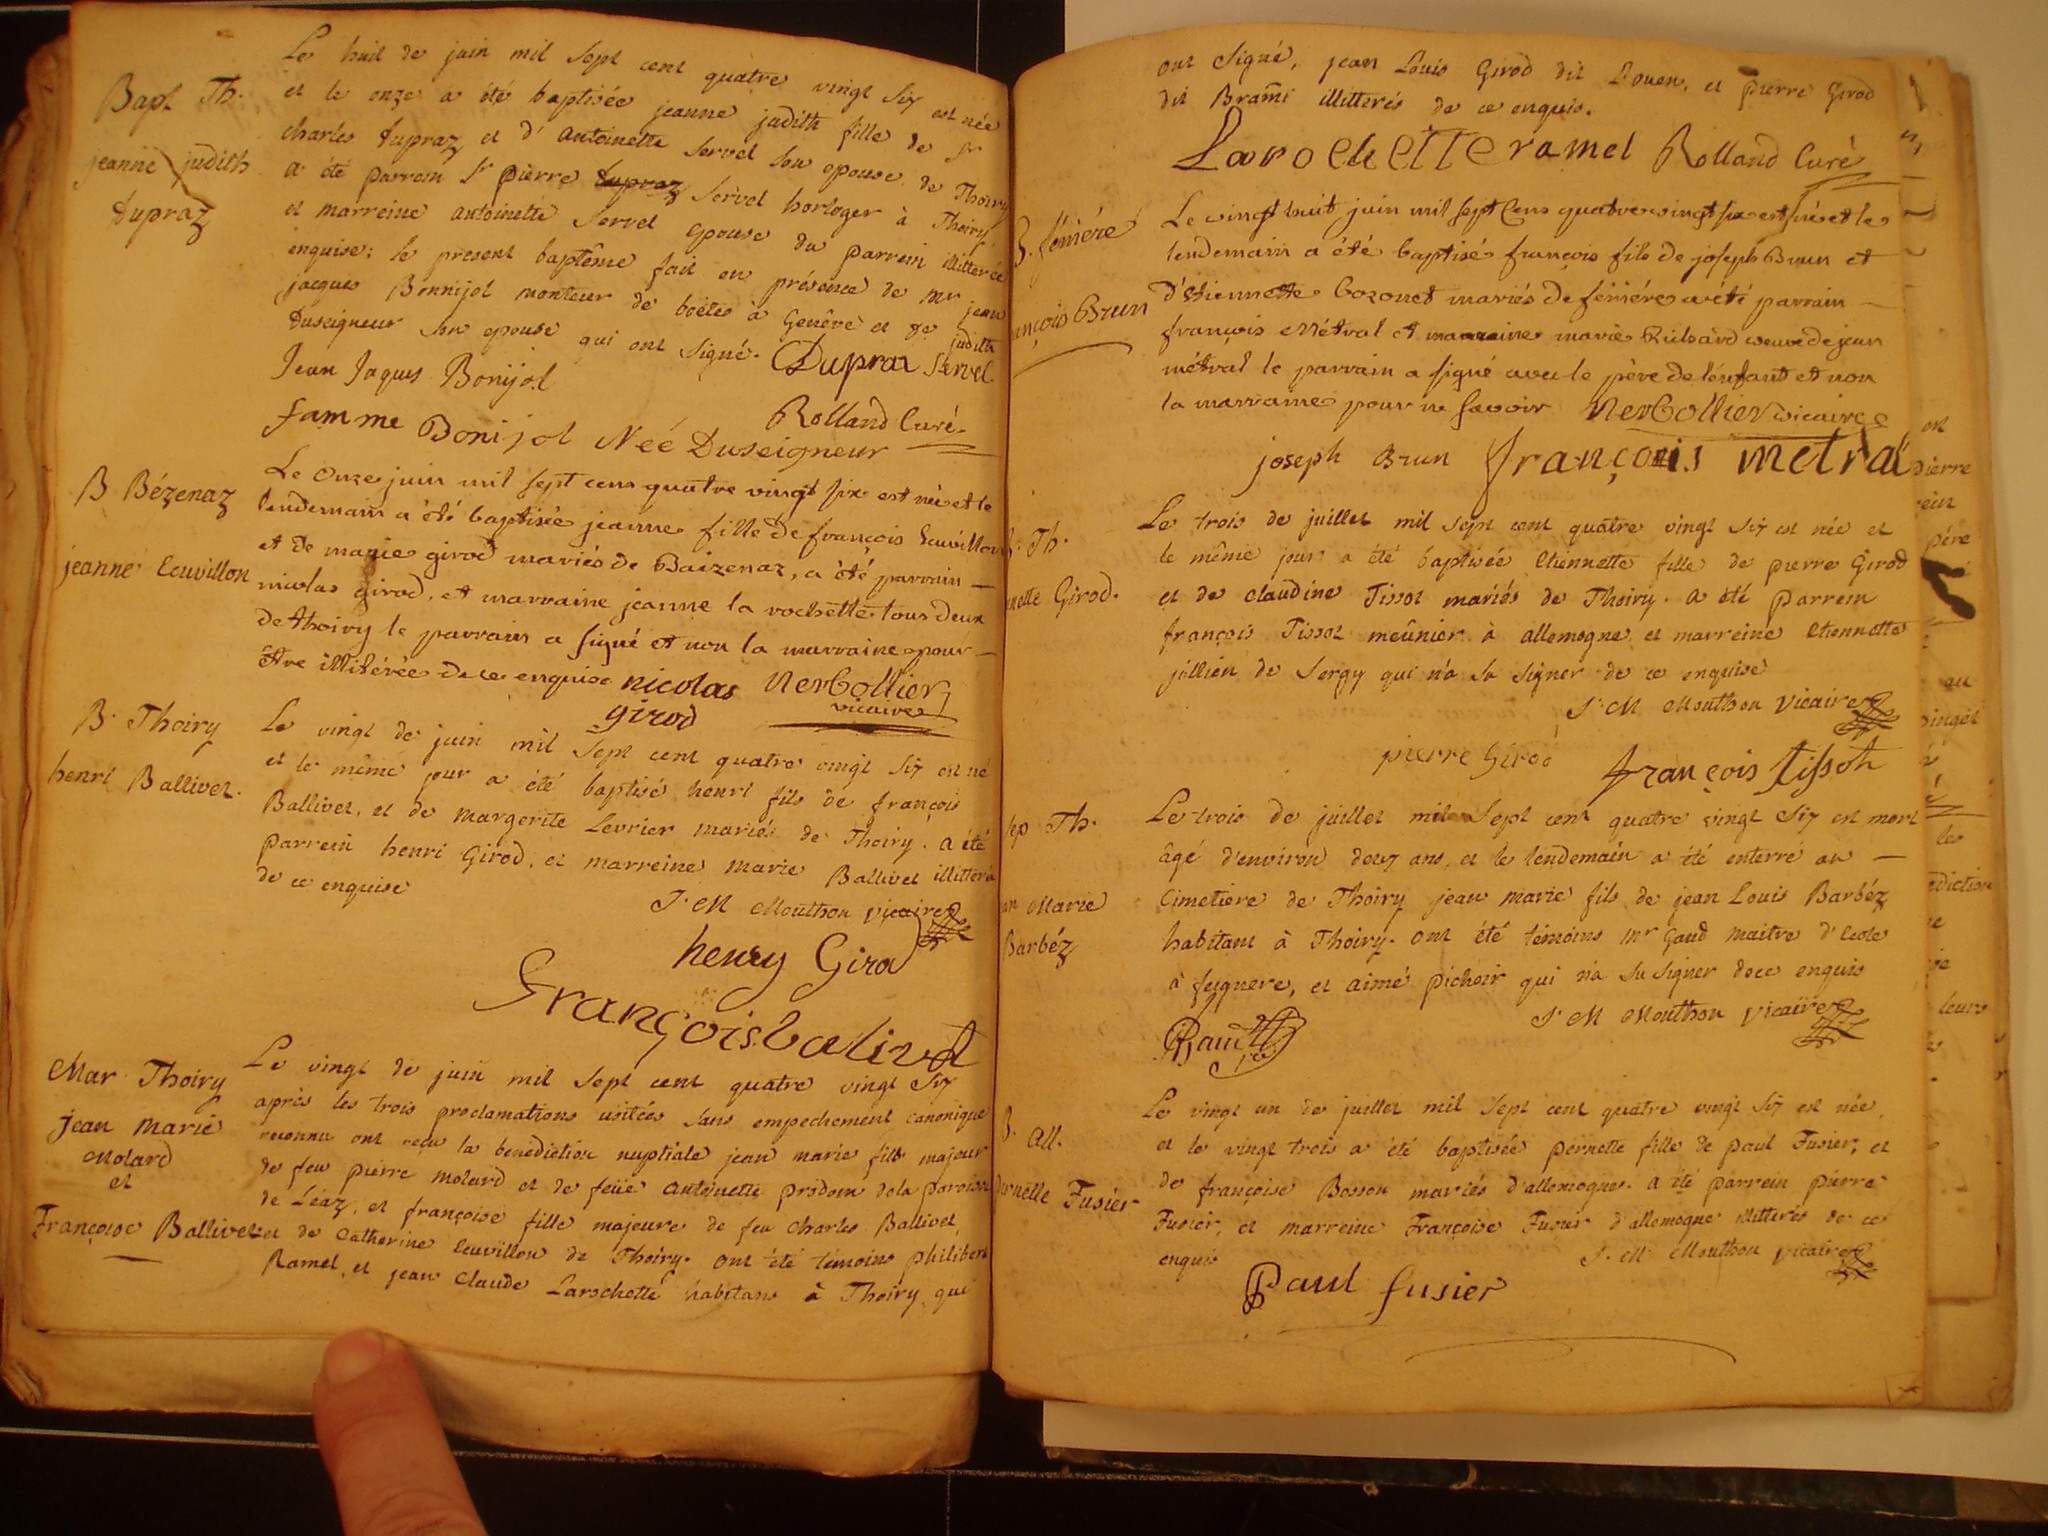 Bapt Th.
jeanne judith
Dupraz
Le huit de juin mil sept cent quatre vingt six est née
et le onze a été baptisée jeanne judith fille de Sr
charles Dupraz et d'Antoinette Servel son epouse de Thoiry
a été parrein Sr pierre Dupraz Servel horloger à Thoiry
et marreine antoinette Servel epouse du parrein illitterée
enquise; le present baptême fait en présence de Mr jean
jacques Bonnijol monteur de boëtes à Genêve et de judith
Duseigneur son epouse qui ont signé. Dupraz Servel
Jean Jaques Bonijol
Rolland Curé.
famme Bonijol Neé Duseigneur
B Bézenaz
jeanne Levillon
Le onze juin mil sept cens quatre vingt six est née et le
lendemain a été baptisée jeanne fille de françois
et de marie girod mariés de Baizenaz, a été parrain
nicolas girod, et marraine jeanne la rochette tous deux
de thoiry le parrain a signé et non la marraine pour
être illiterée de ce enquise nicolas girod Nerbollier
vicaire
B. Thoiry
henri Ballivet.
Le vingt de juin mil sept cent quatre vingt six est né
et le même jour a été baptisé henri fils de françois
Ballivet, et de Margerite Levrier mariés de Thoiry. a été
parrein henri Girod, et marreine marie Ballivet illitteré
de ce enquise
J. M Mouthon vicaire
henry Girod
François balivet
Mar Thoiry
jean marie
Molard
et
Françoise Ballivet
Le vingt de juin mil sept cent quatre vingt six
après les trois proclamations usitées sans empechement canonique
reconnu ont reçu la benediction nuptiale jean marie fils majeur
de feu pierre molard et de feüe Antoinette prodom de la paroisse
de Léaz, et françoise fille majeure de feu charles Ballivet,
et de Catherine Levillon de Thoiry. ont été témoins philibert
Ramel, et jean Claude Larochette habitans à Thoiry qui
ont signé, jean Louis Girod dit Douen, et pierre Girod
dit Brami illitterés de ce enquis.
Larochette ramel Rolland Curé
B. féniére
françois Brun
Le vingt huit juin mil sept Cens quatre vingt six est né et le
lendemain a été baptisé françois fils de joseph Brun et
d'Etiennette Bozonet mariés de féniére a été parrain
françois Métral et marraine marie veuve de jean
métral le parrain a signé avec le père de l'enfant et non
la marraine pour ne savoir Nerbollier vicaire
joseph Brun françois metral
Th.
Girod.
Le trois de juillet mil sept cent quatre vingt six est née et
le même jour a été baptisée Etiennette fille de pierre Girod
et de claudine Tissot mariés de Thoiry. a été parrein
françois Tissot meûnier à allemogne, et marreine Etiennette
jullien de Sergy qui n'a su signer de ce enquise
J. M Mouthon vicaire
pierre Girod françois tissot
Sep Th.
jean Marie
Barbéz
Le trois de juillet mil sept cent quatre vingt six est mort
âgé d'environ deux ans, et le lendemain a été enterré au
Cimetiere de Thoiry jean marie fils de jean Louis Barbéz
habitant à Thoiry. ont été témoins Mr Gaud maitre d'ecole
à feignere, et aimé pichoir qui n'a su signer de ce enquis
J. M Mouthon vicaire
B. All.
pernette Fusier
Le vingt un de juillet mil sept cent quatre vingt six est née,
et le vingt trois a été baptisée pernette fille de paul Fusier, et
de françoise Bosson mariés d'allemogne. a été parrein pierre
Fusier, et marreine Françoise Fusier d'allemogne illitterés de ce
enquis
J. M. Mouthon vicaire
Paul fusier